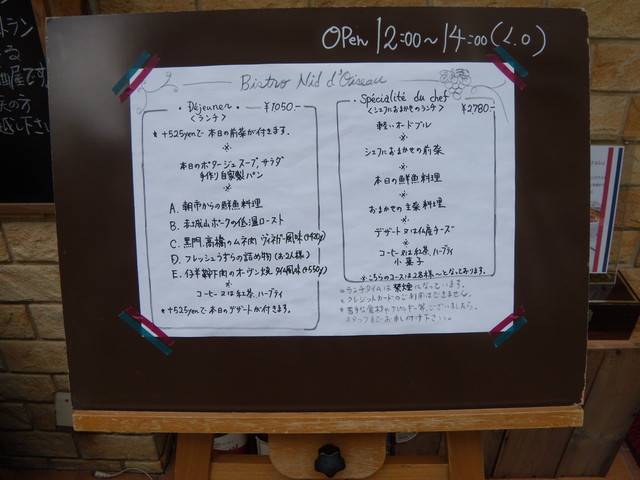 OPen 12:00〜14:00(L.O)
Bistro Nid d'Oiseau
Déjeuner ¥1050-
<ランチ>
* +525yenで 本日の前菜が付きます。
※
本日のポタージュスープ、サラダ
手作り自家製パン
※
A. 朝市からの鮮魚料理
B. 赤城山ポークの低温ロースト
C. 黒門.高橋のムネ肉 ヴィネガー風味(+420y)
D. フレッシュうずらの詰め物(お2人様)
E. 仔羊鞍下肉のオーブン焼、タイム風味(+550y)
※
コーヒー又は紅茶、ハーブティ
* +525yenで 本日のデザートが付きます。
Spécialité du chef
<シェフにおまかせのランチ> ¥2,780-
軽いオードブル
※
シェフにおまかせの前菜
※
本日の鮮魚料理
※
おまかせの主菜料理
※
デザート又は仏産チーズ
※
コーヒー又は紅茶、ハーブティ
小菓子
※こちらのコースは2名様〜となっております。
※ランチタイムは禁煙になっています。
※クレジットカードのご利用はできません。
※苦手な食材やアレルギー等ございましたら、
スタッフまでお申し付け下さい。
トラン
る
酒屋です
の方
越し下さい